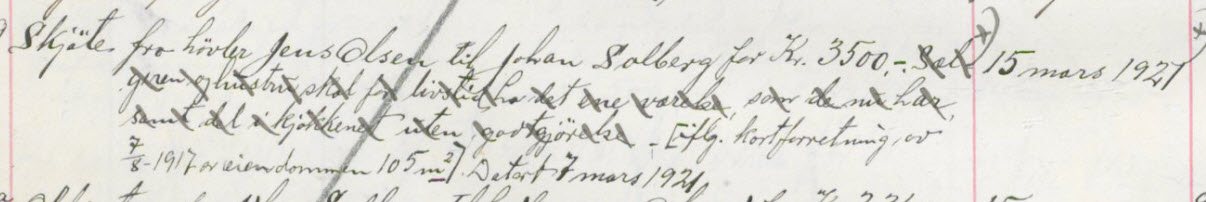 Skjöte fra hövler Jens Olsen til Johan Solberg for Kr. 3500,-. Sæl- x) 15 mars 1921 x)
geren og hustru skal for livstid ha det ene værelse, som de nu har,
samt del i kjökkenet uten godtgjörelse. [iflg. kortforretning av
7/8-1917 er eiendommen 105 m²]. Datert 7 mars 1921